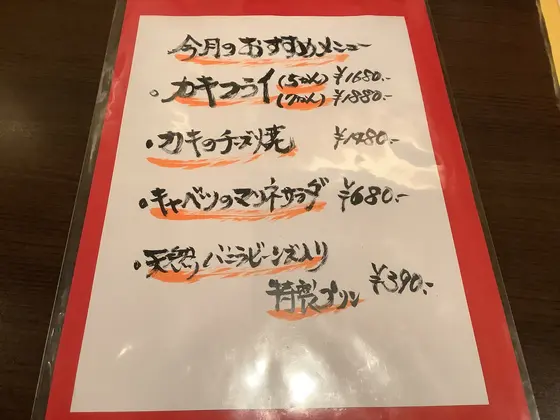 今月のおすすめメニュー
。カキフライ(5コ入) ¥1650.-
(7コ入) ¥1880.-
・カキのチーズ焼 ¥1480.-
・キャベツのマリネサラダ ¥680.-
・天然バニラビーンズ入り
特製プリン ¥390.-